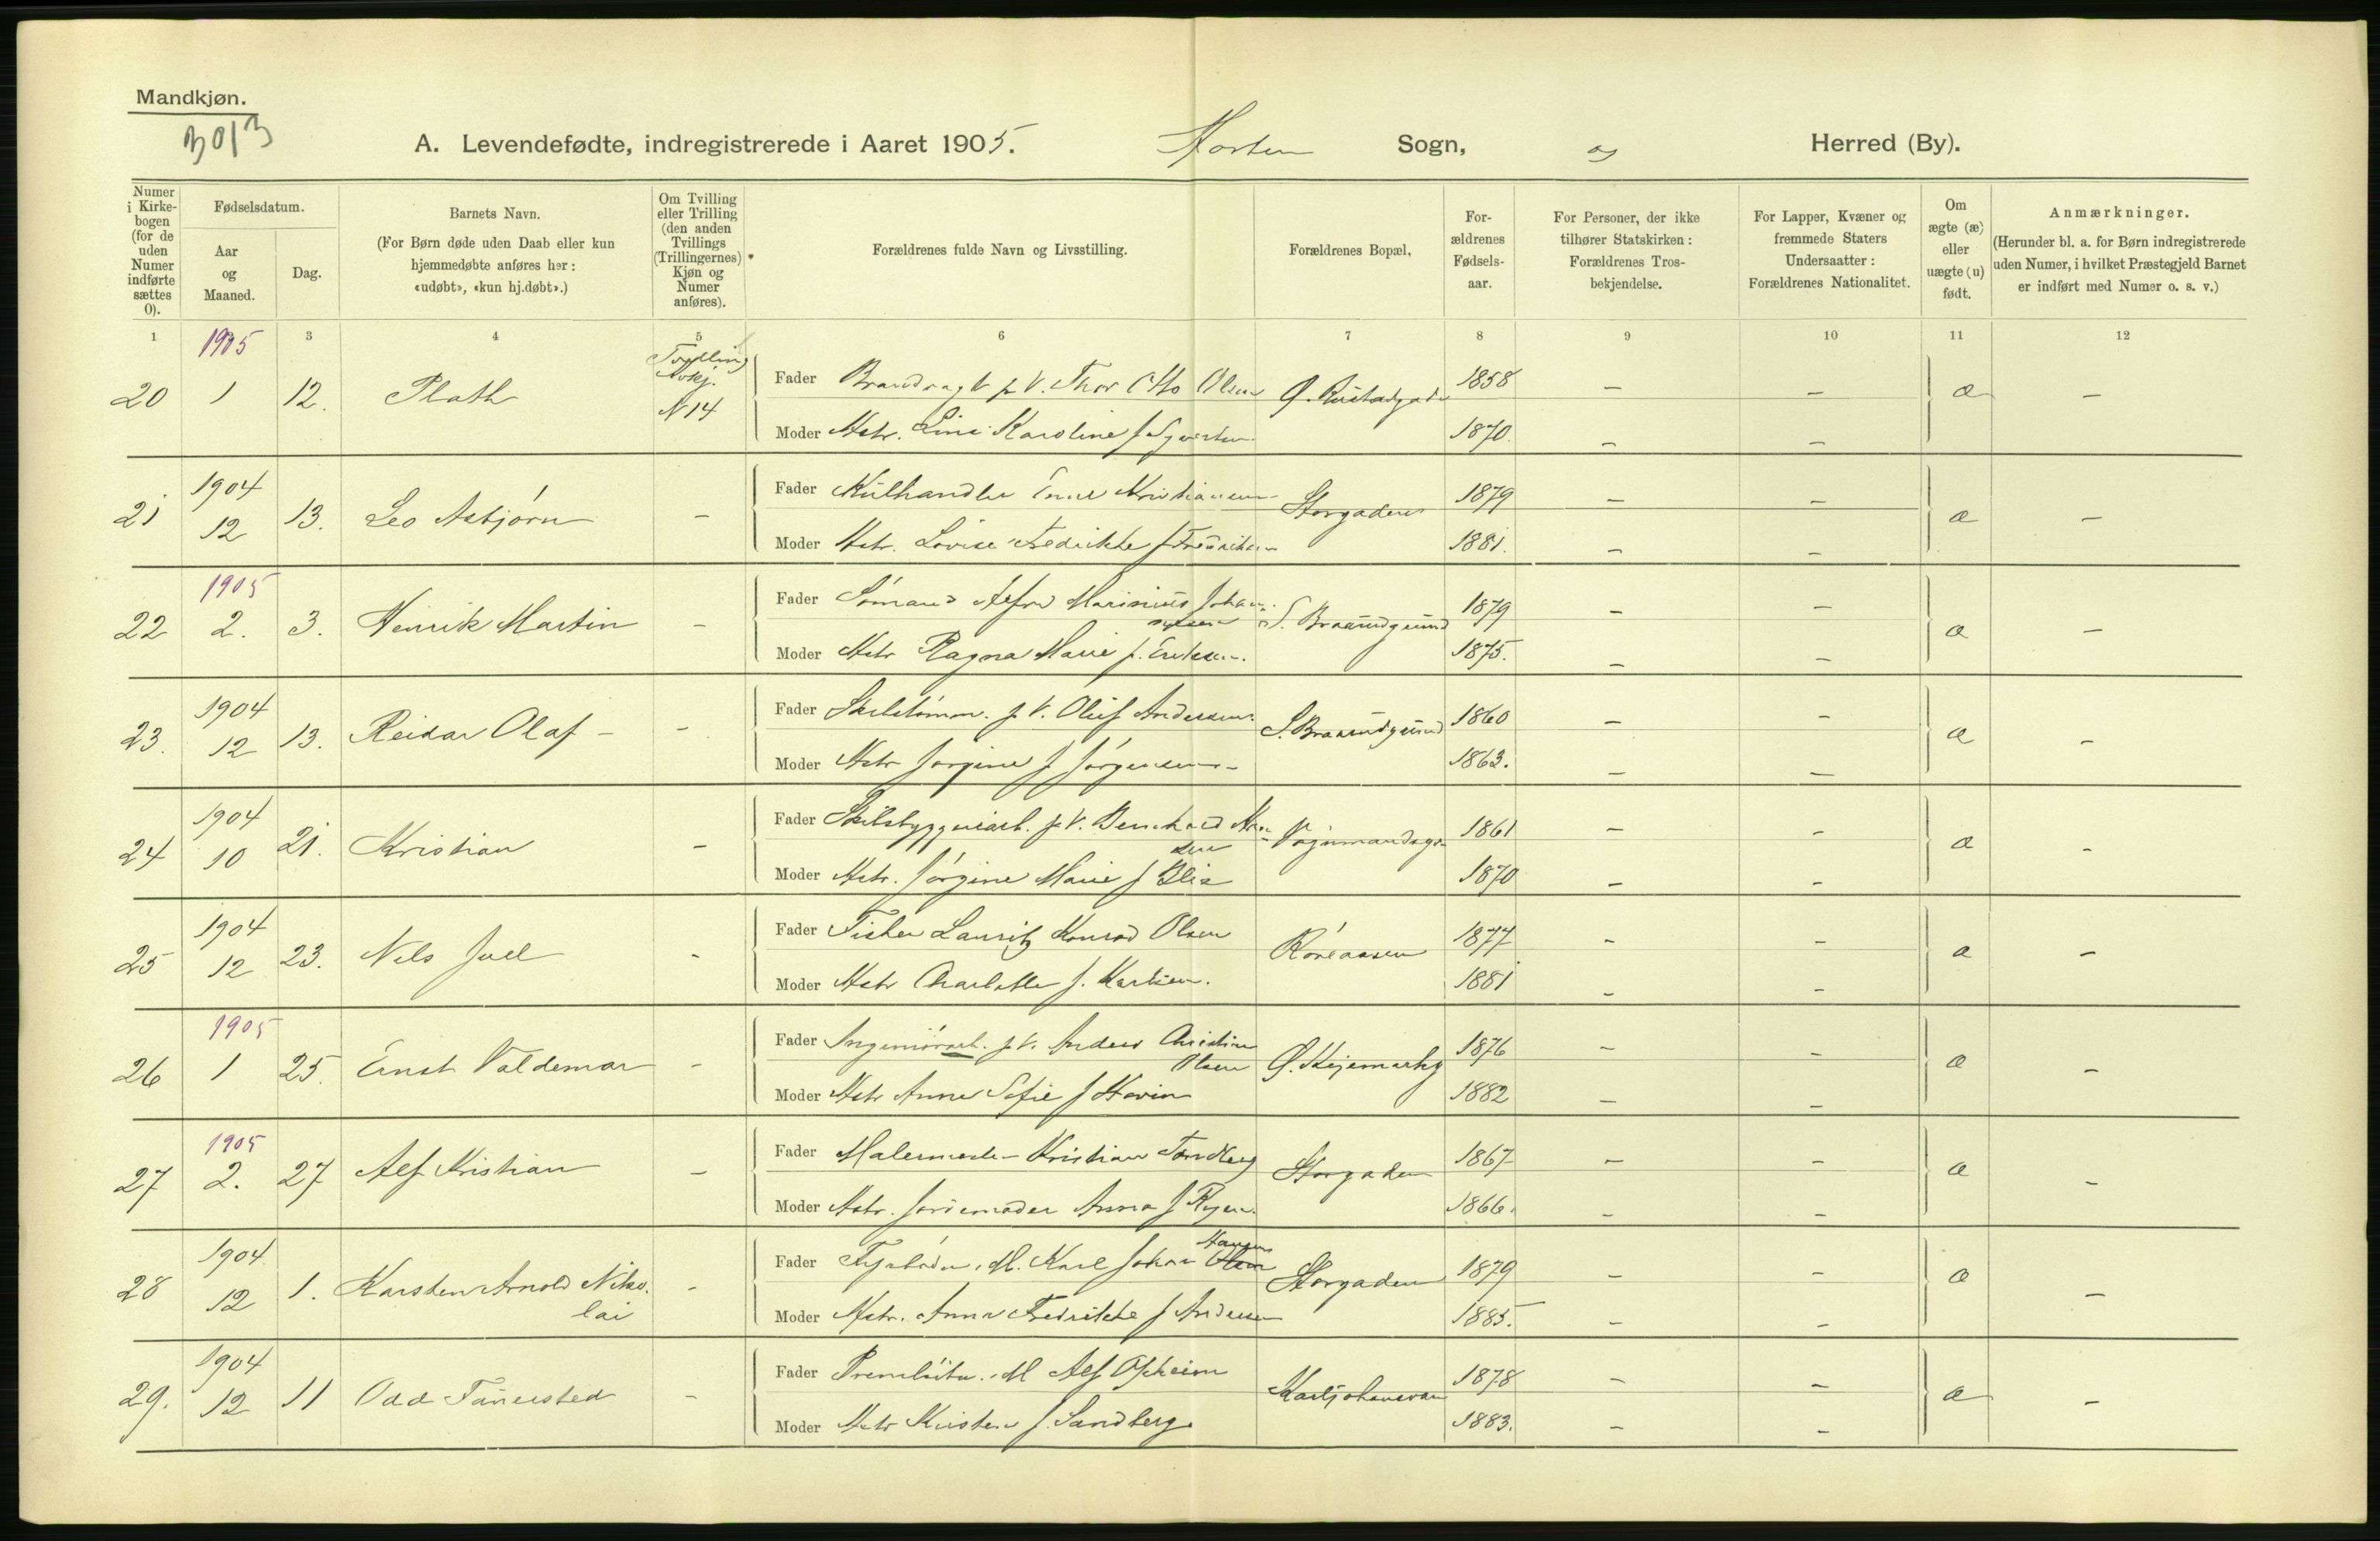 Mandkjøn.
3013
A. Levendefødte, indregistrerede i Aaret 1905. Horten Sogn, og Herred (By).
Numer i Kirke-bogen (for de uden Numer indførte sættes 0).
Fødselsdatum.
Aar og Maaned.
Dag.
Barnets Navn.
(For Børn døde uden Daab eller kun
hjemmedøbte anføres her:
«udøbt», «kun hj.døbt».)
Om Tvilling
eller Trilling
(den anden
Tvillings
(Trillingernes)
Kjøn og
Numer
anføres).
Forældrenes fulde Navn og Livsstilling.
Forældrenes Bopæl,
For-
ældrenes
Fødsels-
aar.
For Personer, der ikke
tilhører Statskirken:
Forældrenes Tros-
bekjendelse.
For Lapper, Kvæner og
fremmede Staters
Undersaatter:
Forældrenes Nationalitet.
Om
ægte (æ)
eller
uægte (u)
født.
Anmærkninger.
(Herunder bl. a. for Børn indregistrerede
uden Numer, i hvilket Præstegjeld Barnet
er indført med Numer o. s. v.)
1 3 4 5 6 7 8 9 10 11 12
1905 Tvilling
20 1 12. N 14
Fader p. V. Thor Otto Olsen 1858 – – æ –
Moder Hstr. Line Karoline f. 1870. – –
1904
21 12 13. Leo Asbjørn –
Fader Kulhandler Kristiansen Storgaden 1879 – – æ –
Moder Hstr. Lovise Fredrikke f. 1881. – –
1905
22 2. 3. Henrik Martin –
Fader Sømand Marinius Johan- S. Braarudgrund 1879 – – æ –
Moder Hstr Ragna Marie f. Eriksen. 1875. – –
1904
23. 12 13. Reidar Olaf – –
Fader Skibstømm. p. V. Oluf Andersen S. Braarudgrund 1860 – – æ –
Moder Hstr Jørgine f. Jørgensen – 1863. – –
1904
24 10 21. Kristian –
Fader Skibsbyggeriarb. p. V. Bernhard 1861 – – æ –
Moder Hstr. Jørgine Marie f 1870 – –
1904
25 12 23. Nils Juel –
Fader Fisker Lauritz Konrad Olsen Røreaasen 1877 – – æ –
Moder Hstr Charlotte f. 1881 – –
1905
26 1 25. Ernst Valdemar –
Fader Ingeniørarb. p. V. Anders Christian
Olsen 1876 – – æ –
Moder Hstr Anne Sofie f 1882 – –
1905
27 2. 27 Alf Kristian –
Fader Malermester Kristian Storgaden 1867 – – æ –
Moder Hstr. Jordemoder Anna f 1866. – –
1904
28 12 1. Karsten Arnold Niko-
lai –
Fader Fyrbøder M. Karl Johan Hansen Storgaden 1879 – – æ –
Moder Hstr. Anna Fredrikke f Andersen 1885. – –
1904
29. 12 11 Odd –
Fader M Alf Opheim Karljohansværn 1878 – – æ –
Moder Hstr Kirsten f. Sandberg 1883. – –